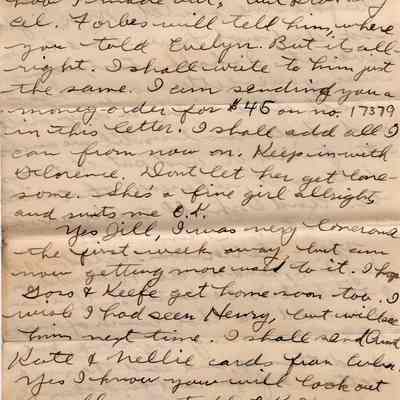 al. Forbes will tell him, where
you told Evelyn. But it all-
right. I shall write to him just
the same. I am sending you a
money order for $45 on no. 17379
in this letter. I shall add all I
can from now on. Keep in with
Dlorence. Don't let her get lone-
some. She's a fine girl allright,
and suits me O.K.
Yes Jill, I was very lonesome
the first week away but am
now getting more used to it. I hope
Goss & Keefe get home soon too. I
wish I had seen Henry, but will see
him next time. I shall send Aunt
Kate & Nellie cards from Cuba.
Yes I know you will look out